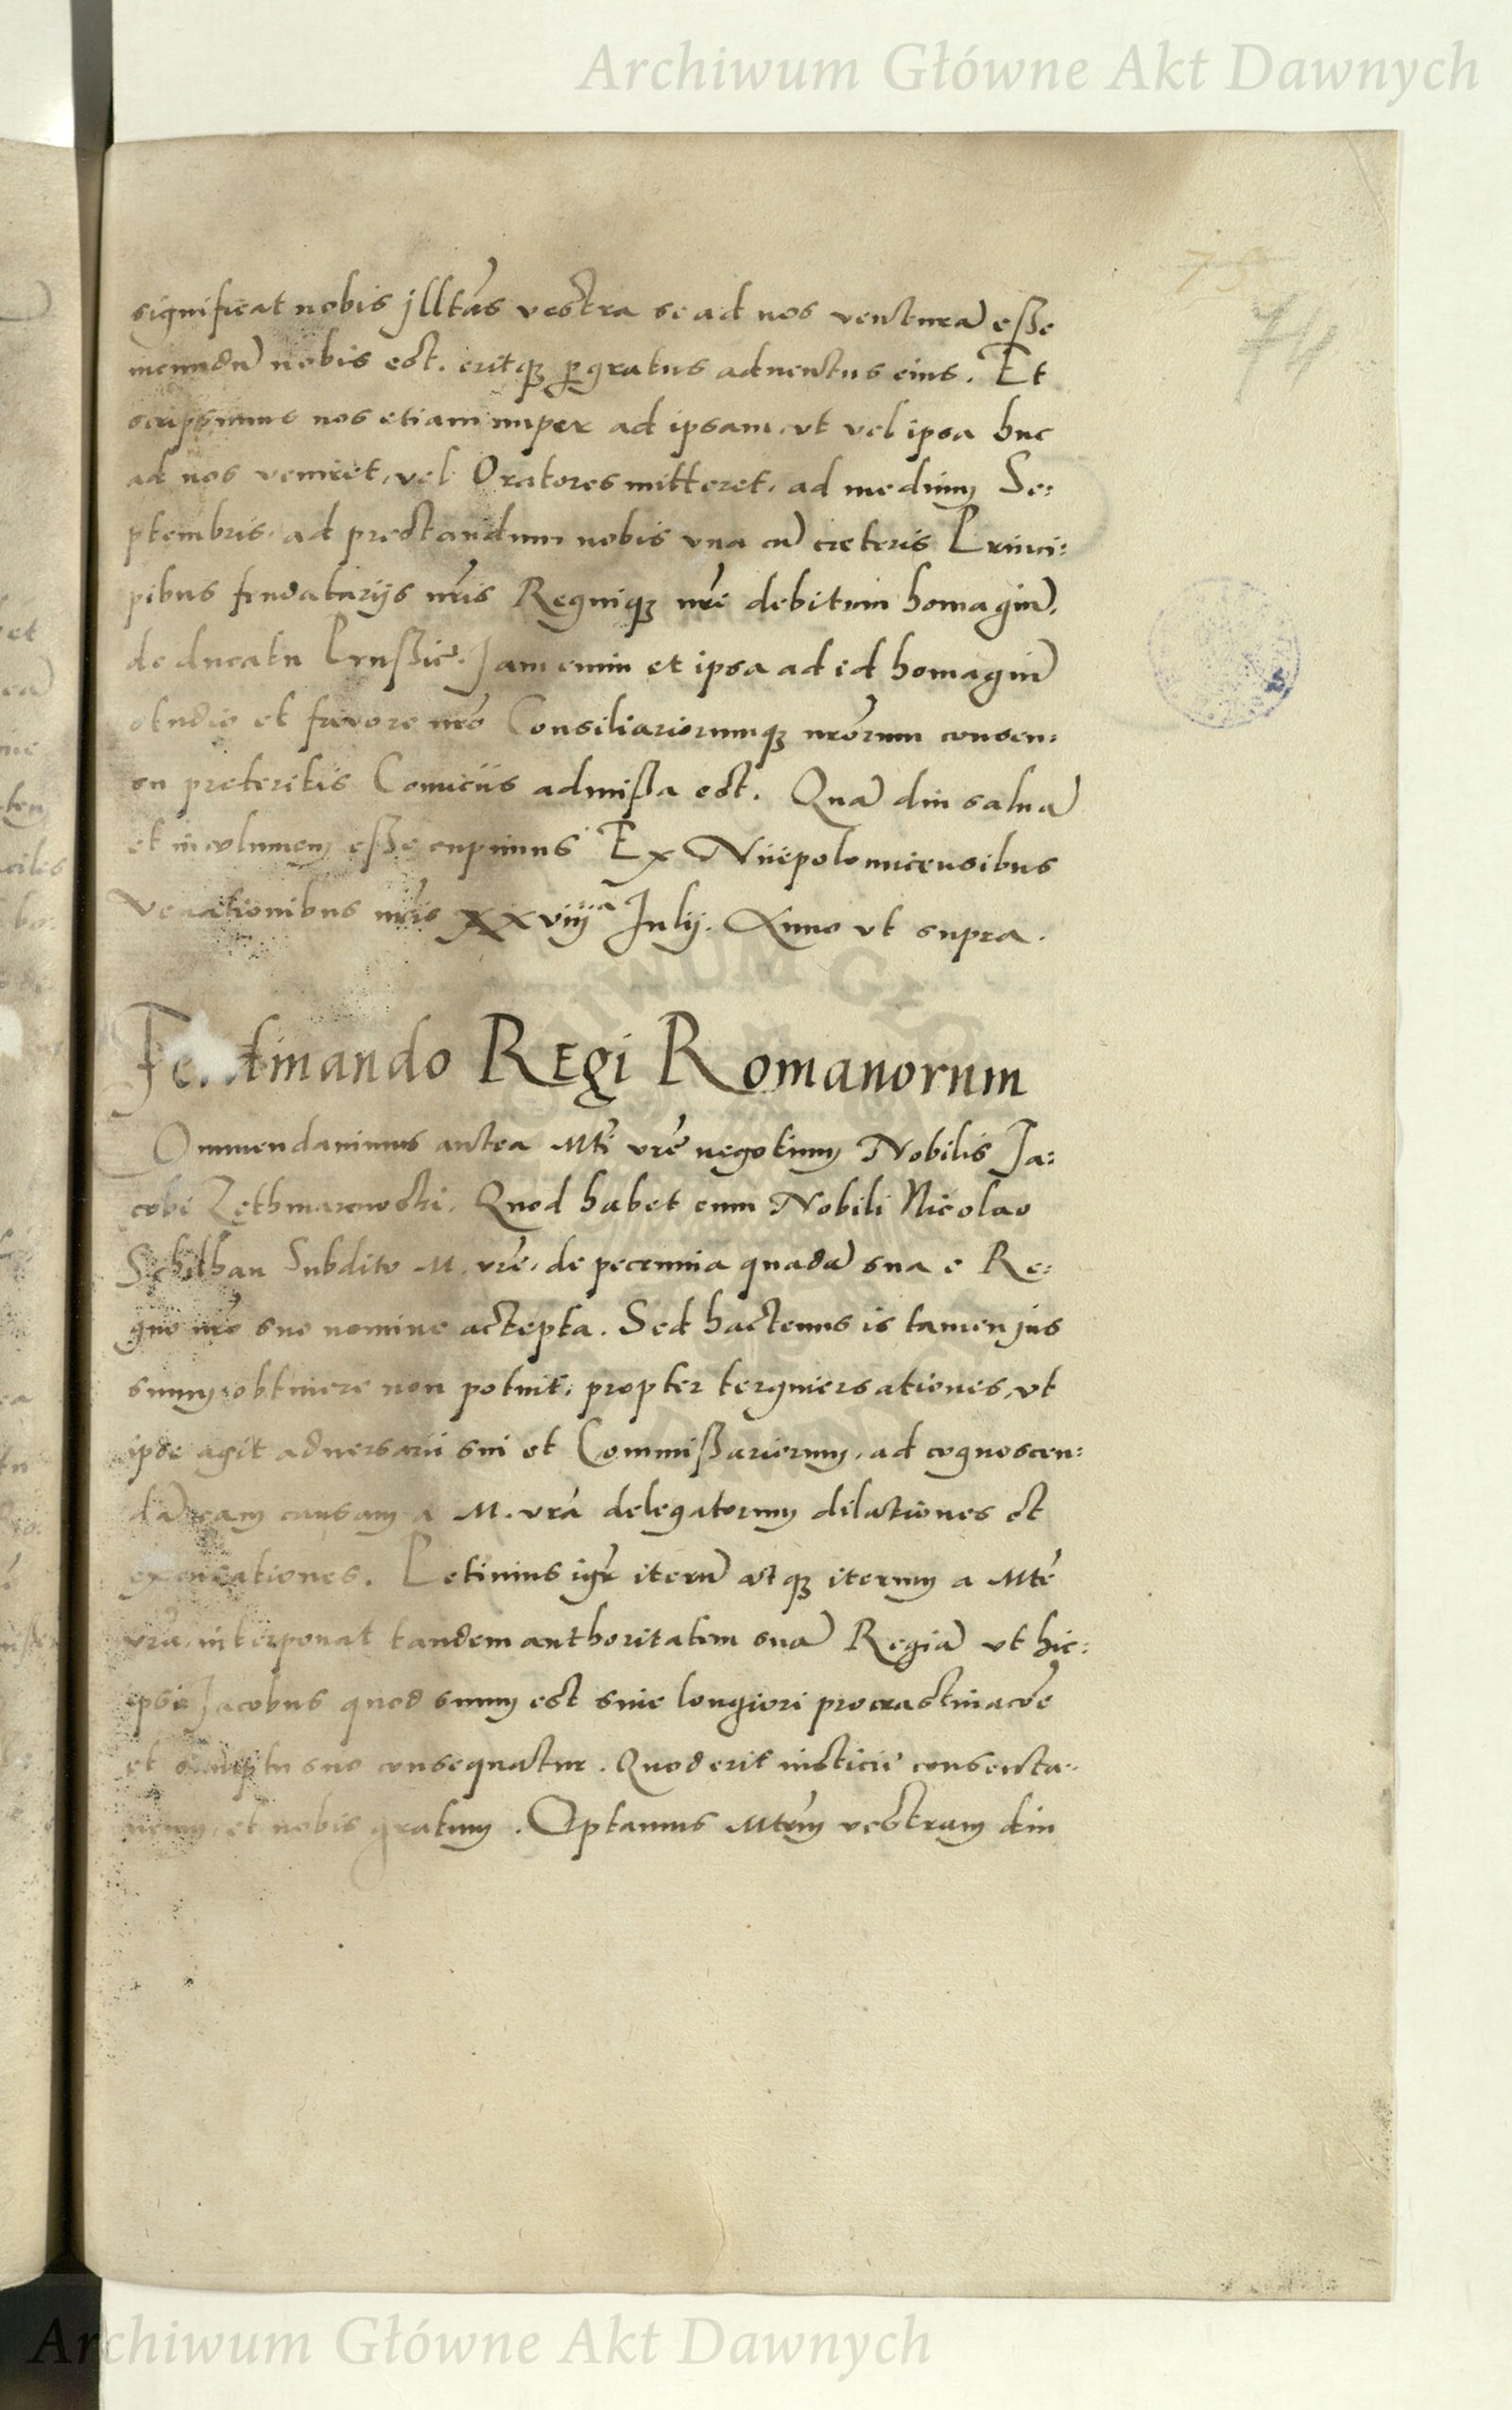 Archiwum Główne Akt Dawnych
75
74
significat nobis jlltás vestra se ad nos venturā eße
iucundū nobis est. eritqȝ ꝑgratus aduentus eius. Et
scripsimus nos etiam nuper ad ipsam, vt vel ipsa huc
ad nos veniret, vel Oratores mitteret, ad medium Se:
ptembris, ad prestandum nobis vna cū cæteris Princi:
pibus feudatarijs nr̄is Regniqȝ nr̄i debitum homagiū,
de ducatu Prußie. Jam enim et ipsa ad id homagiū
studio et favore nr̄o Consiliariorumqȝ nr̄orum consen:
su preteritis Comiciis admißa est. Quā diu saluā
et incolumem eße cupimus Ex Niiepolomicensibus
Venationibus nr̄is xxviiij Julij. Anno vt supra.
Ferdinando Regi Romanorum
Commendauimus antea Mti vr̄e negotium Nobilis Ja:
cobi Zęthmarowski, Quod habet cum Nobili Nicolao
Schilhan Subdito M. vr̄e, de pecunia quadā sua e Re:
gno nr̄o suo nomine accepta. Sed hactenus is tamen jus
suum obtinere non potuit, propter tergiuersationes, vt
ipse agit aduersarii sui et Commißariorum, ad cognoscen:
dā eam causam a M. vr̄a delegatorum dilationes et
excusationes. Petimus igr̄ iterū atqȝ iterum a Mte
vr̄a, interponat tandem authoritatem suā Regiā vt hic:
ipse Jacobus quod suum est sine longiori procrastinac̄oe
et sumptu suo consequatur. Quod erit iusticie consenta:
neum, et nobis gratum. Optamus Mtem vestram diu
Archiwum Główne Akt Dawnych